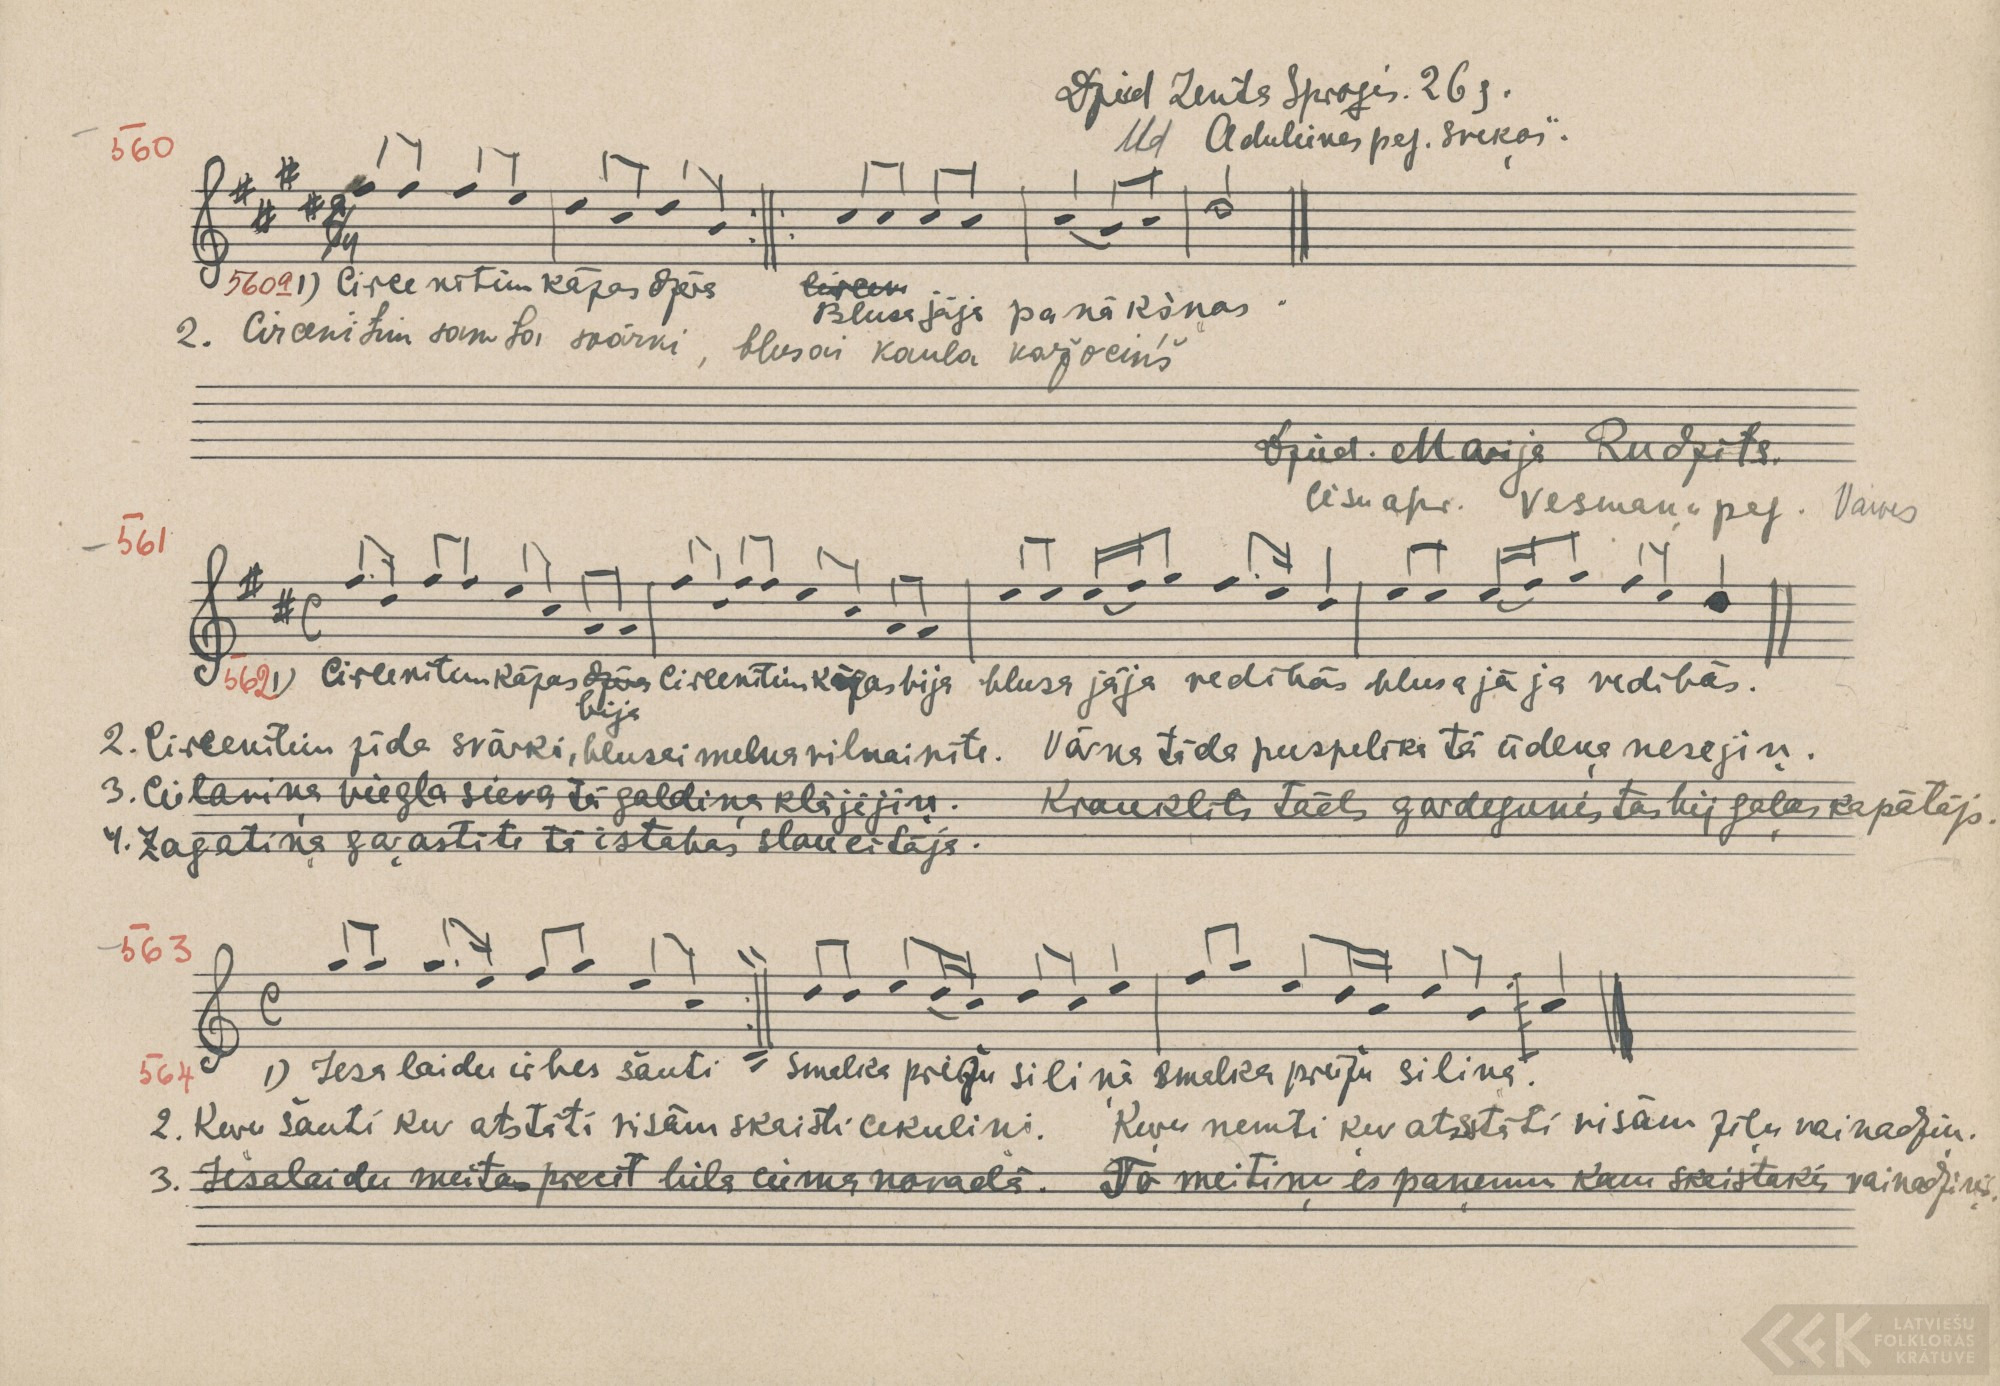 Dzied Zenta Sproģis. 26 g.
Adulienes pag. Sveķos".
560
560a 1) Circenītim kāzas dzēra Circen
Blusa jāja panākšņos.
2. Circenītim samta svārki, blusai kaula kažociņš
Dzied. Marija Rudzīts.
Cēsu apr. Vesmaņu pag.
561
562 1) Circenītim kāzas dzēra Circenītim kāzas bija blusa jāja vedībās blusa jāja vedībās.
bija
2. Circenītim zīda svārki, blusai melna vilnainīte. Vārna tāda puspelēka tā ūdeņa nesējiņ.
3. Cielaviņa viegla sieva tā galdiņa klājējiņ. Krauklīts tāds gardegunis tas bij gaļas kapātājs.
4. Žagatiņa gaŗastīte tā istabas slaucītāja.
563
564 1) Iesalaidu irbes šauti smalka priežu siliņā smalka priežu siliņā.
2. Kuŗu šauti kur atstāti visām skaisti cekuliņi. Kuŗu ņemti kur atstāti visām zīļu vainadziņ.
3. Iesalaidu meitas precīt liela ciema novadā. To meitiņu es paņemu kam skaistakis vainadziņis.
LATVIEŠU
FOLKLORAS
KRĀTUVE